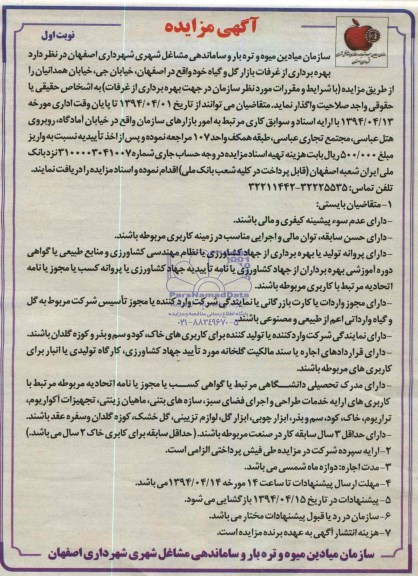 آگهی مزایده
نوبت اول
سازمان میادین میوه و تره بار و ساماندهی مشاغل شهری شهرداری اصفهان در نظر دارد
بهره برداری از غرفات بازار گل و گیاه خود واقع در اصفهان، خیابان جی، خیابان همدانیان را
از طریق مزایده (با شرایط و مقررات مورد نظر سازمان در جهت بهره برداری از غرفات) به اشخاص حقیقی یا
حقوقی واجد صلاحیت واگذار نماید. متقاضیان می توانند از تاریخ ۱۳۹۴/۰۴/۰۱ تا پایان وقت اداری مورخه
۱۳۹۴/۰۴/۱۳ با ارایه اسناد و سوابق کاری مرتبط به امور بازارهای سازمان واقع در خیابان آمادگاه، روبروی
هتل عباسی، مجتمع تجاری عباسی، طبقه همکف واحد ۱۰۷ مراجعه نموده و پس از اخذ تأییدیه نسبت به واریز
مبلغ ۵۰۰/۰۰۰ ریال بابت هزینه تهیه اسناد مزایده در وجه حساب جاری شماره ۳۱۰۰۰۰۳۰۴۱۰۰۷ نزد بانک
ملی ایران شعبه اصفهان (قابل پرداخت در کلیه شعب بانک ملی) اقدام نموده و اسناد مزایده را دریافت نمایند.
تلفن تماس: ۳۲۲۲۵۵۳۵-۳۲۲۱۱۴۴۲
۱- متقاضیان بایستی:
-دارای عدم سوء پیشینه کیفری و مالی باشند.
-دارای حسن سابقه، توان مالی و اجرایی مناسب در زمینه کاربری مربوطه باشند.
-دارای پروانه تولید یا بهره برداری از جهاد کشاورزی یا نظام مهندسی کشاورزی و منابع طبیعی یا گواهی
دوره آموزشی بهره برداران از جهاد کشاورزی یا نامه تأییدیه جهاد کشاورزی یا پروانه کسب یا مجوز یا نامه
اتحادیه مرتبط با کاربری مربوطه باشند.
-دارای مجوز واردات یا کارت بازرگانی یا نمایندگی شرکت وارد کننده یا مجوز تأسیس شرکت مربوط به گل
و گیاه وارداتی اعم از طبیعی و مصنوعی باشند.
-دارای نمایندگی شرکت وارد کننده یا تولید کننده برای کاربری های خاک، کود و سم و بذر و کوزه گلدان باشند.
-دارای قراردادهای اجاره یا سند مالکیت گلخانه مورد تأیید جهاد کشاورزی، کارگاه تولیدی یا انبار برای
کاربری های مربوطه باشند.
-دارای مدرک تحصیلی دانشگاهی مرتبط یا گواهی کسب یا مجوز یا نامه اتحادیه مربوطه مرتبط با
کاربری های ارایه خدمات طراحی و اجرای فضای سبز، سازه های بتنی، ماهیان زینتی، تجهیزات آکواریوم،
تراریوم، خاک، کود، سم و بذر، ابزار چوبی، ابزار گل، لوازم تزیینی، گل خشک، کوزه گلدان و سفره عقد باشند.
-دارای حداقل ۳ سال سابقه کار در صنعت مربوطه باشند. (حداقل سابقه برای کابری خاک ۲ سال می باشد.)
۲- ارایه سپرده شرکت در مزایده طی فیش پرداختی الزامی است.
۳- مدت اجاره: دوازده ماه شمسی می باشد.
۴- مهلت ارسال پیشنهادات تا ساعت ۱۴ مورخه ۱۳۹۴/۰۴/۱۴ می باشد.
۵- پیشنهادات در تاریخ ۱۳۹۴/۰۴/۱۵ بازگشایی می شود.
۶- سازمان در رد یا قبول پیشنهادات مختار می باشد.
۷- هزینه انتشار آگهی به عهده برنده مزایده است.
سازمان میادین میوه و تره بار و ساماندهی مشاغل شهری شهرداری اصفهان
ParsNamadData
۰۲۱-۸۸۳۴۹۶۷۰-۵